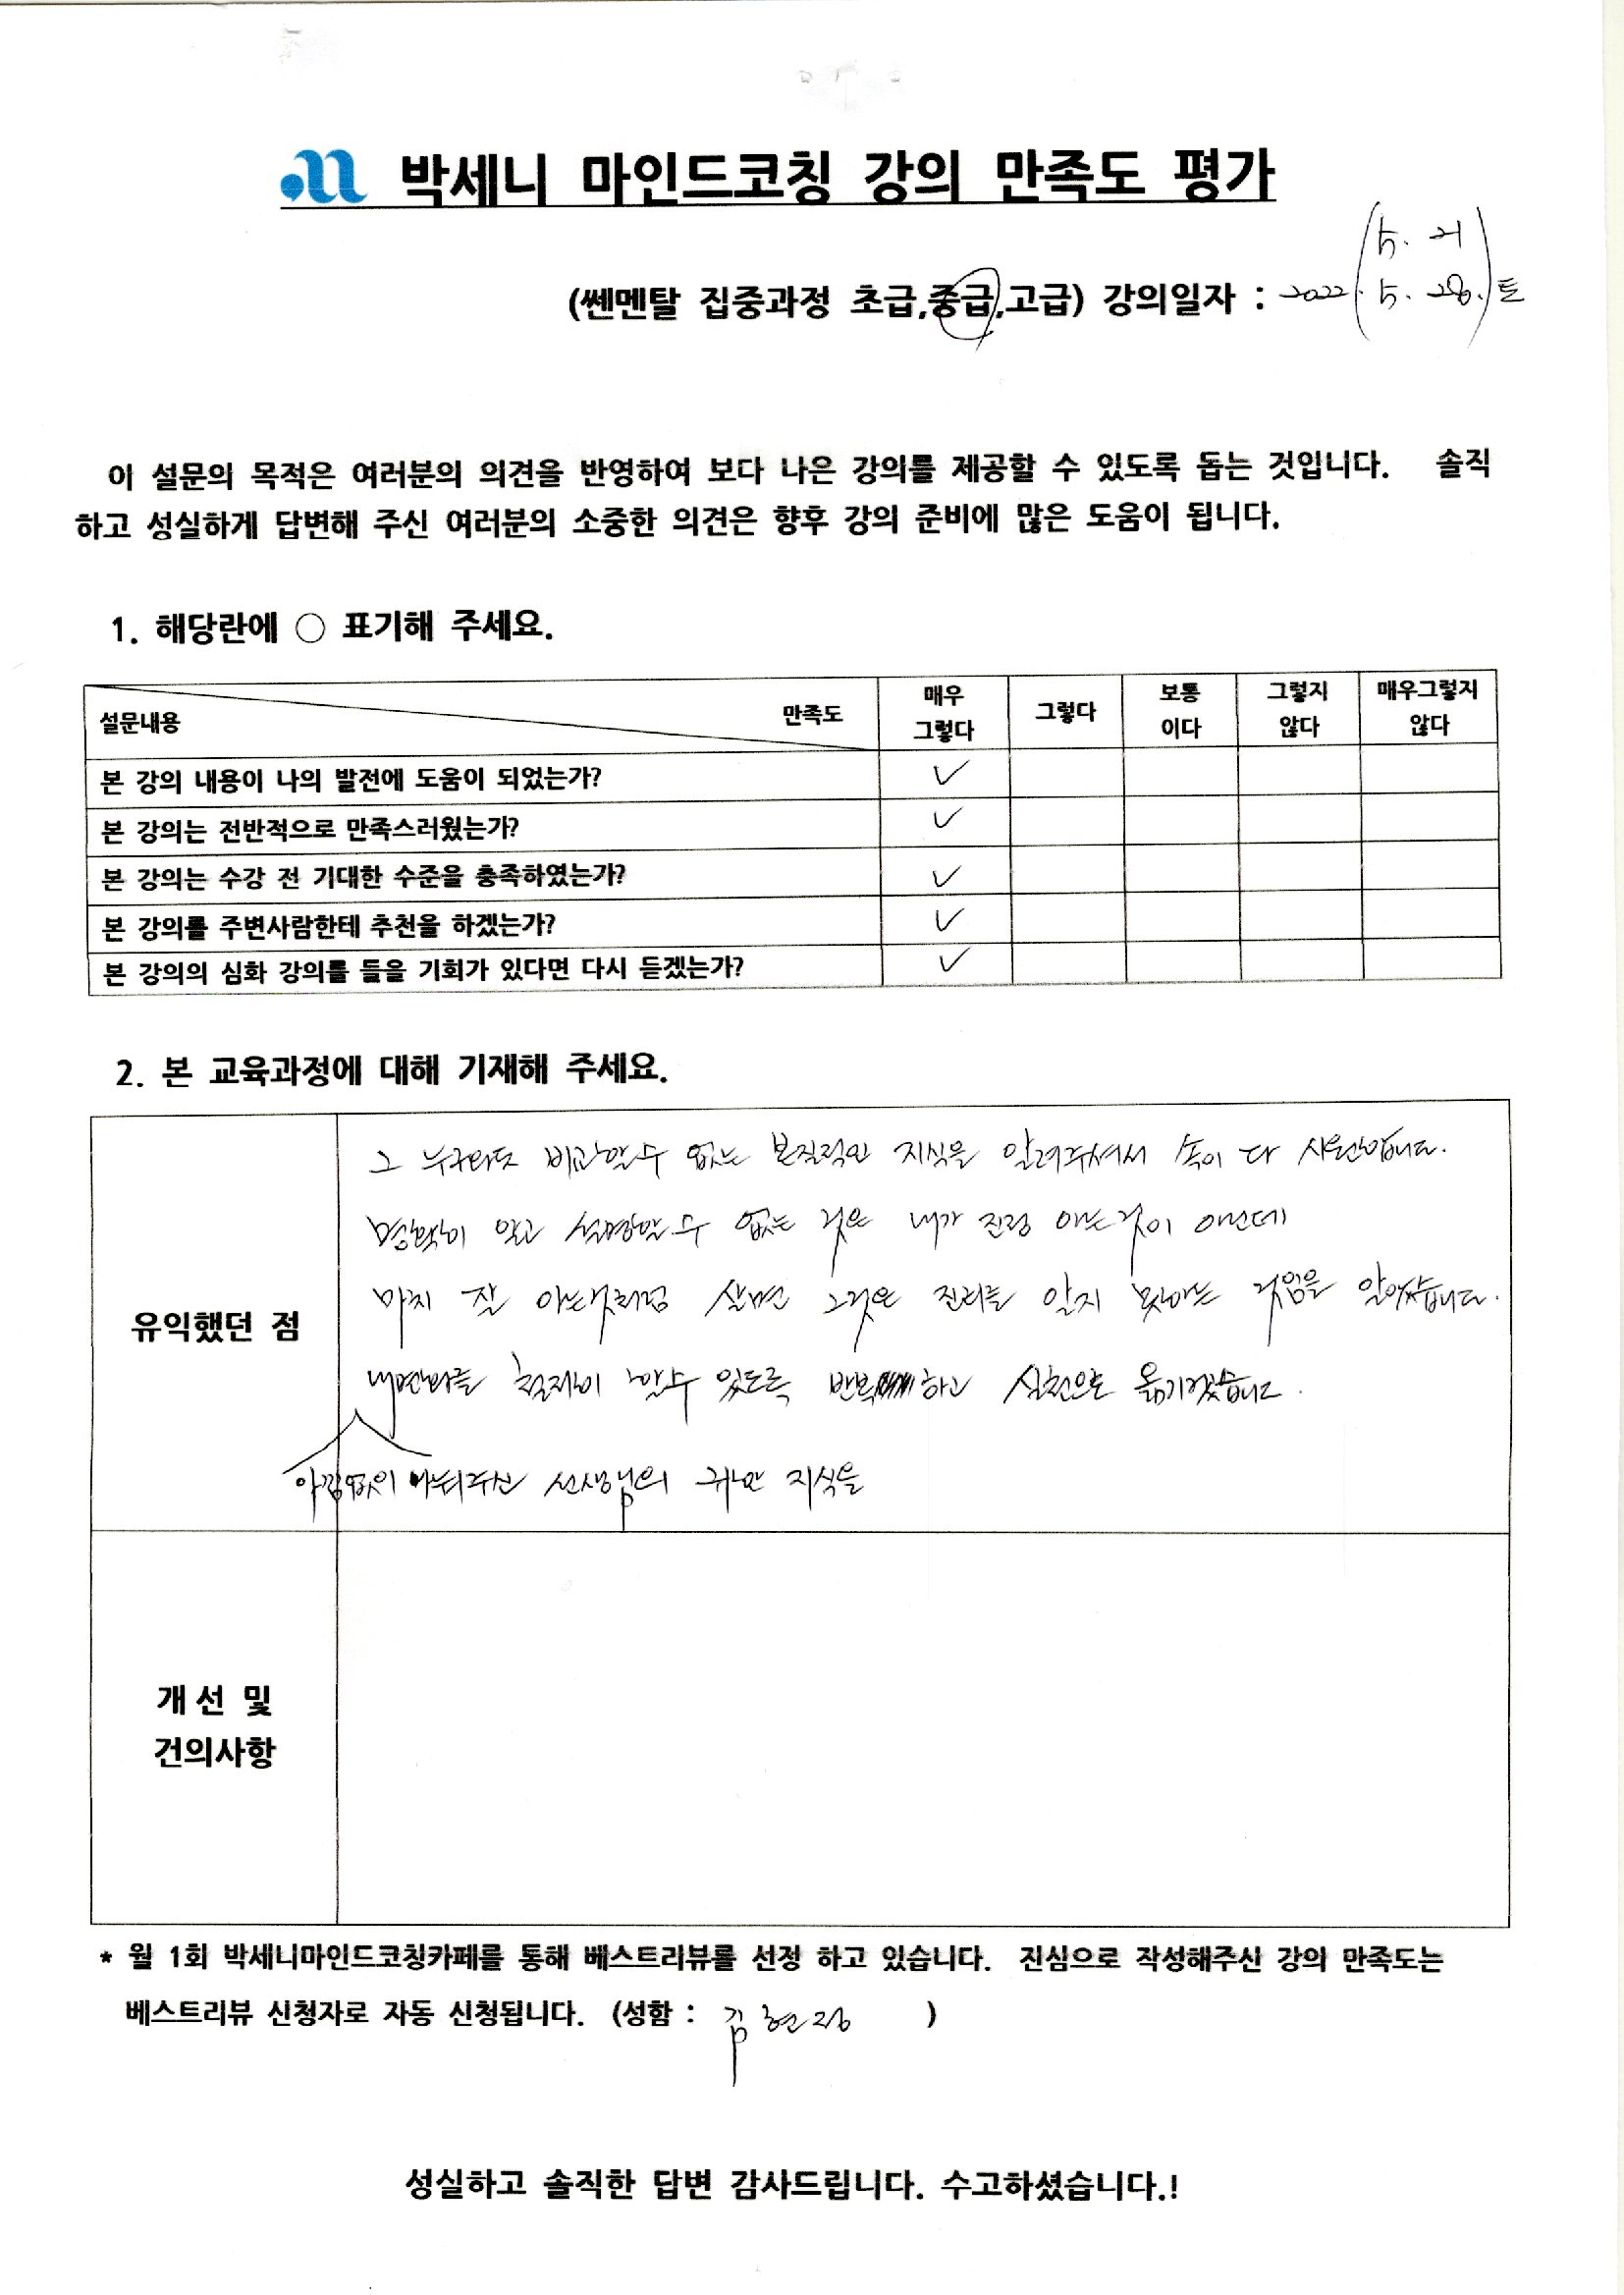 박세니 마인드코칭 강의 만족도 평가
(5. 21)
(쎈멘탈 집중과정 초급,중급,고급) 강의일자 : 2022. 5. 28. 토
이 설문의 목적은 여러분의 의견을 반영하여 보다 나은 강의를 제공할 수 있도록 돕는 것입니다. 솔직
하고 성실하게 답변해 주신 여러분의 소중한 의견은 향후 강의 준비에 많은 도움이 됩니다.
1. 해당란에 ○ 표기해 주세요.
설문내용 만족도 매우 그렇다 그렇다 보통 이다 그렇지 않다 매우그렇지 않다
본 강의 내용이 나의 발전에 도움이 되었는가? ✓
본 강의는 전반적으로 만족스러웠는가? ✓
본 강의는 수강 전 기대한 수준을 충족하였는가? ✓
본 강의를 주변사람한테 추천을 하겠는가? ✓
본 강의의 심화 강의를 들을 기회가 있다면 다시 듣겠는가? ✓
2. 본 교육과정에 대해 기재해 주세요.
유익했던 점
그 누구라도 비교할수 없는 본질적인 지식을 알려주셔서 속이 다 시원합니다.
명확히 알고 설명할 수 없는 것은 내가 진정 아는것이 아닌데
마치 잘 아는것처럼 살면 그것은 진리를 알지 못하는 것임을 알았습니다.
내면화를 철저히 할수 있도록 반복하고 실천으로 옮기겠습니다.
아낌없이 나눠주신 선생님의 귀한 지식을
개선 및
건의사항
* 월 1회 박세니마인드코칭카페를 통해 베스트리뷰를 선정 하고 있습니다. 진심으로 작성해주신 강의 만족도는
베스트리뷰 신청자로 자동 신청됩니다. (성함 : 김현정 )
성실하고 솔직한 답변 감사드립니다. 수고하셨습니다.!